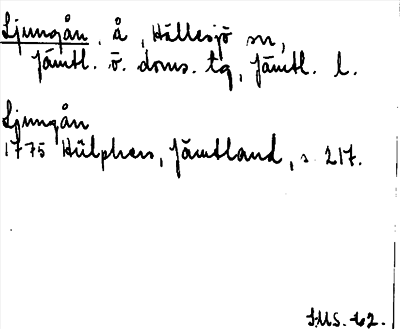 Ljungån, å, Hällesjö sn,
Jämtl. ö. doms. tg, Jämtl. l.
Ljungån
1775 Hülphers, Jämtland, s. 217.
I.M.S. -62.